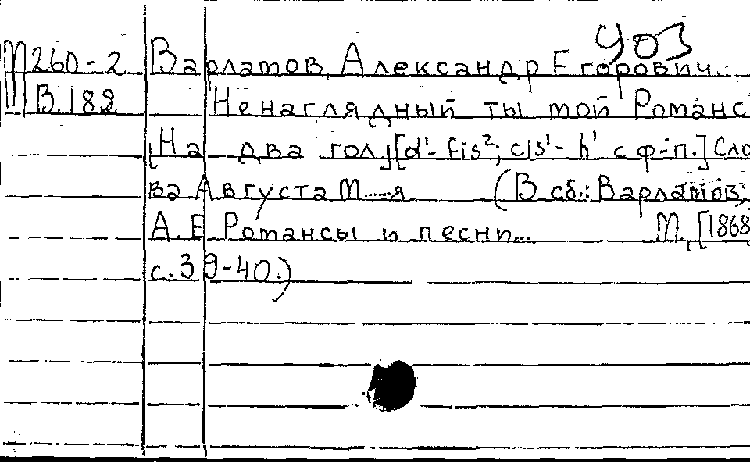 403
М260-2 Варламов, Александр Егорович.
В.189 Ненаглядный ты мой Романс
[На два гол.] [d'-fis²; cis'-h' с ф-п.] Сло
ва Августа М....я (В сб.: Варламов,
А.Е. Романсы и песни... М., [1868
с.39-40.)